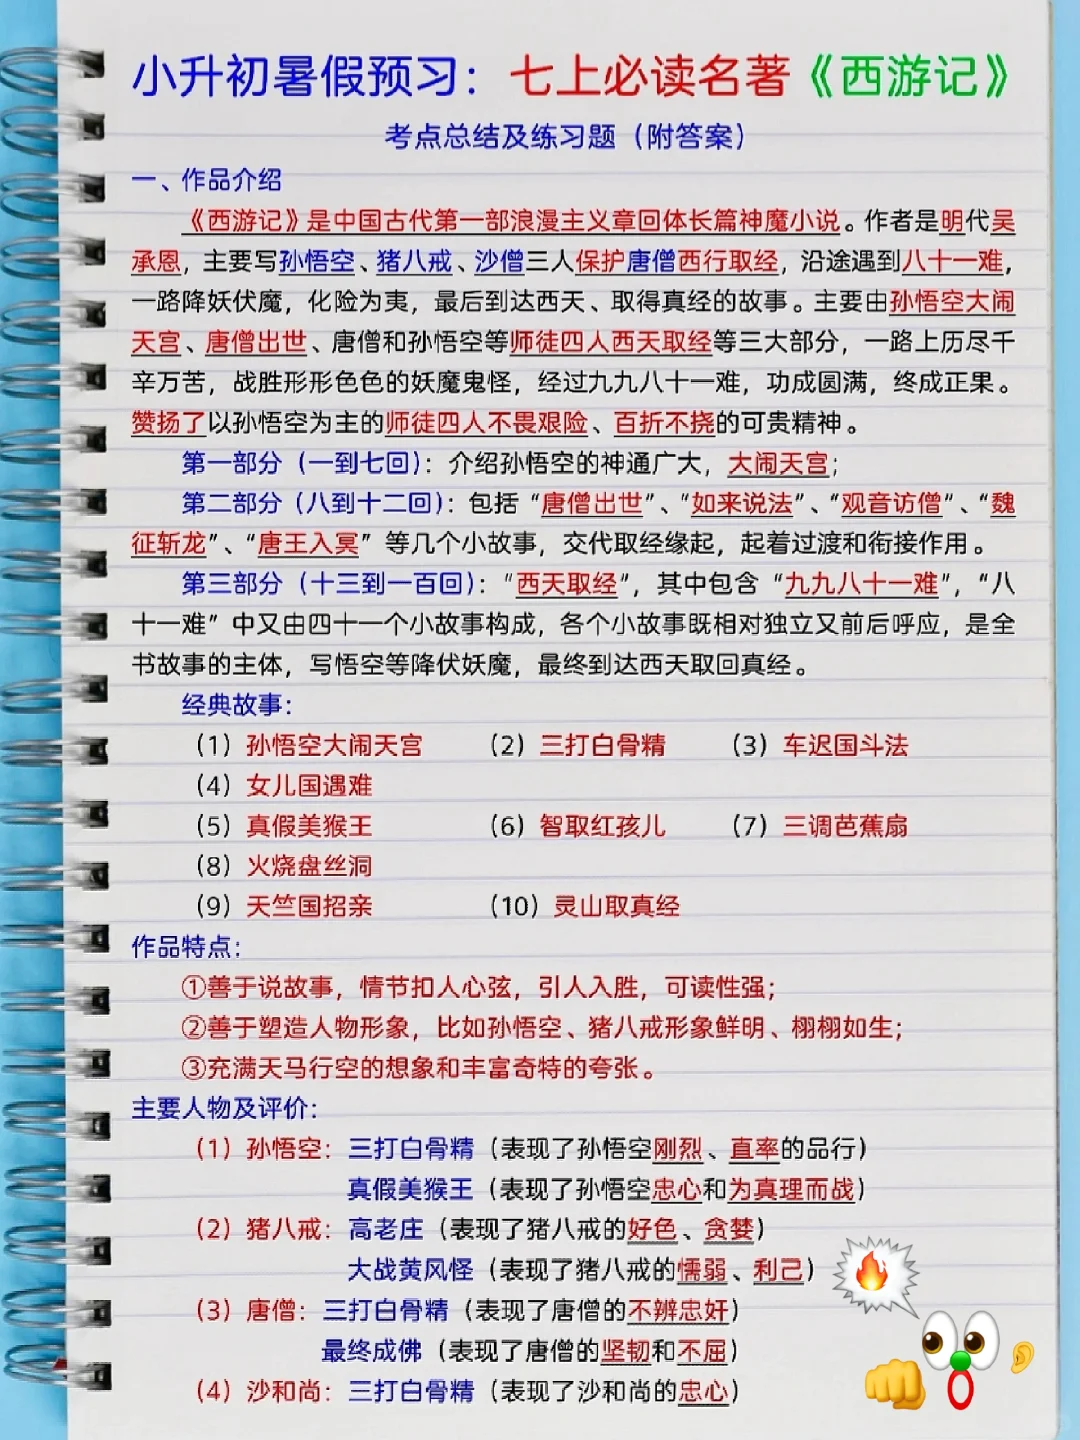 小升初暑假预习：七上必读名著《西游记》
考点总结及练习题（附答案）
一、作品介绍
《西游记》是中国古代第一部浪漫主义章回体长篇神魔小说。作者是明代吴
承恩，主要写孙悟空、猪八戒、沙僧三人保护唐僧西行取经，沿途遇到八十一难，
一路降妖伏魔，化险为夷，最后到达西天、取得真经的故事。主要由孙悟空大闹
天宫、唐僧出世、唐僧和孙悟空等师徒四人西天取经等三大部分，一路上历尽千
辛万苦，战胜形形色色的妖魔鬼怪，经过九九八十一难，功成圆满，终成正果。
赞扬了以孙悟空为主的师徒四人不畏艰险、百折不挠的可贵精神。
第一部分（一到七回）：介绍孙悟空的神通广大，大闹天宫；
第二部分（八到十二回）：包括“唐僧出世”、“如来说法”、“观音访僧”、“魏
征斩龙”、“唐王入冥”等几个小故事，交代取经缘起，起着过渡和衔接作用。
第三部分（十三到一百回）：“西天取经”，其中包含“九九八十一难”，“八
十一难”中又由四十一个小故事构成，各个小故事既相对独立又前后呼应，是全
书故事的主体，写悟空等降伏妖魔，最终到达西天取回真经。
经典故事：
（1）孙悟空大闹天宫 （2）三打白骨精 （3）车迟国斗法
（4）女儿国遇难
（5）真假美猴王 （6）智取红孩儿 （7）三调芭蕉扇
（8）火烧盘丝洞
（9）天竺国招亲 （10）灵山取真经
作品特点：
①善于说故事，情节扣人心弦，引人入胜，可读性强；
②善于塑造人物形象，比如孙悟空、猪八戒形象鲜明、栩栩如生；
③充满天马行空的想象和丰富奇特的夸张。
主要人物及评价：
（1）孙悟空：三打白骨精（表现了孙悟空刚烈、直率的品行）
真假美猴王（表现了孙悟空忠心和为真理而战）
（2）猪八戒：高老庄（表现了猪八戒的好色、贪婪）
大战黄风怪（表现了猪八戒的懦弱、利己）
（3）唐僧：三打白骨精（表现了唐僧的不辨忠奸）
最终成佛（表现了唐僧的坚韧和不屈）
（4）沙和尚：三打白骨精（表现了沙和尚的忠心）